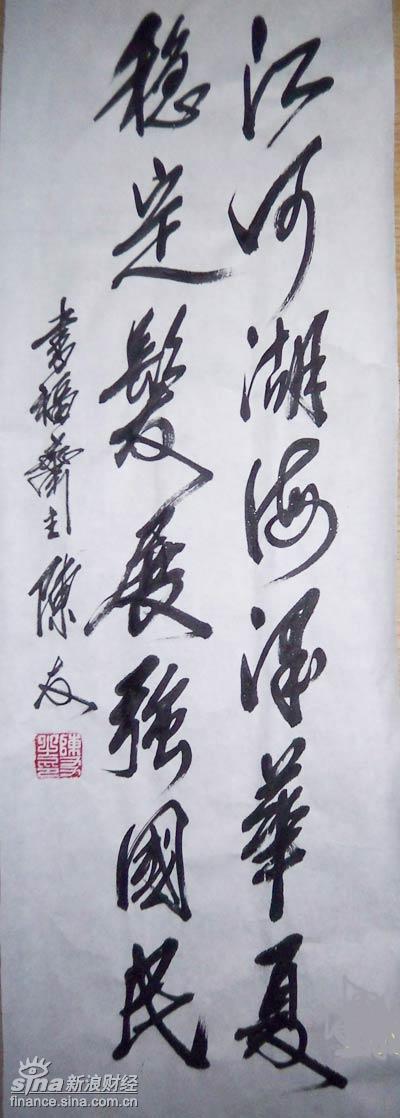 江河湖海泽華夏
稳定髮展強國民
書福齋主陳友
sina 新浪财经
finance.sina.com.cn